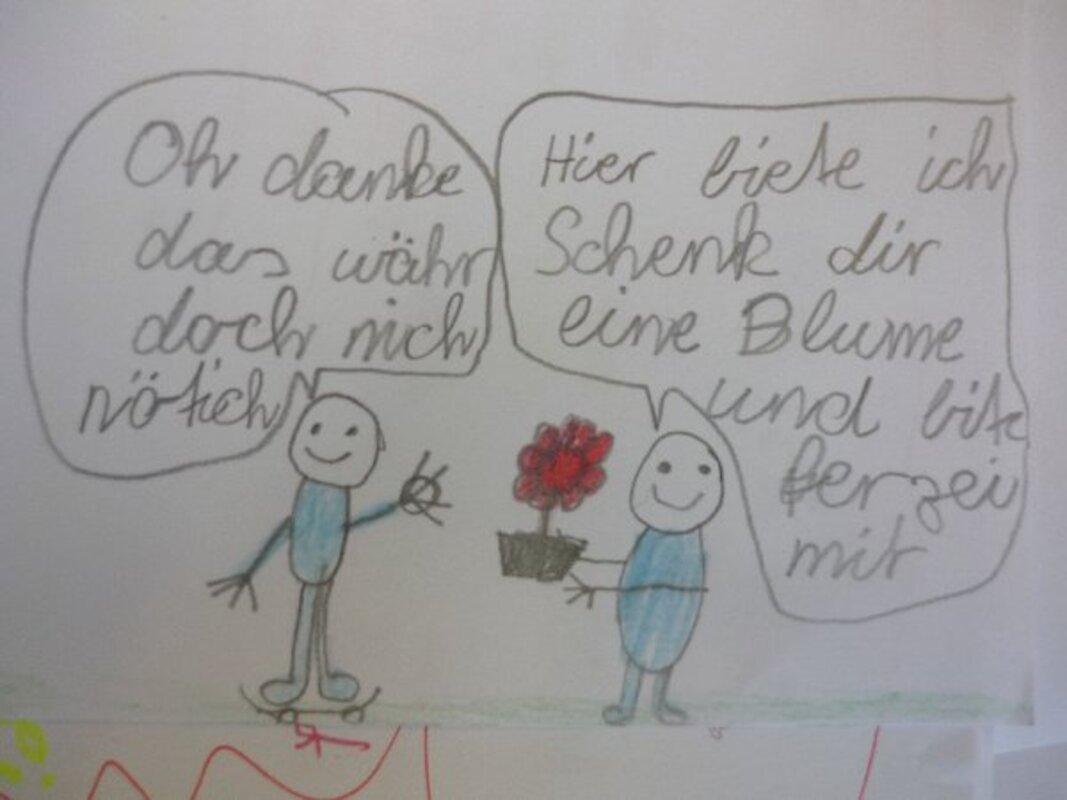 Oh danke
das währ
doch nich
nötich
Hier biete ich
Schenk dir
eine Blume
und bite
ferzei
mir